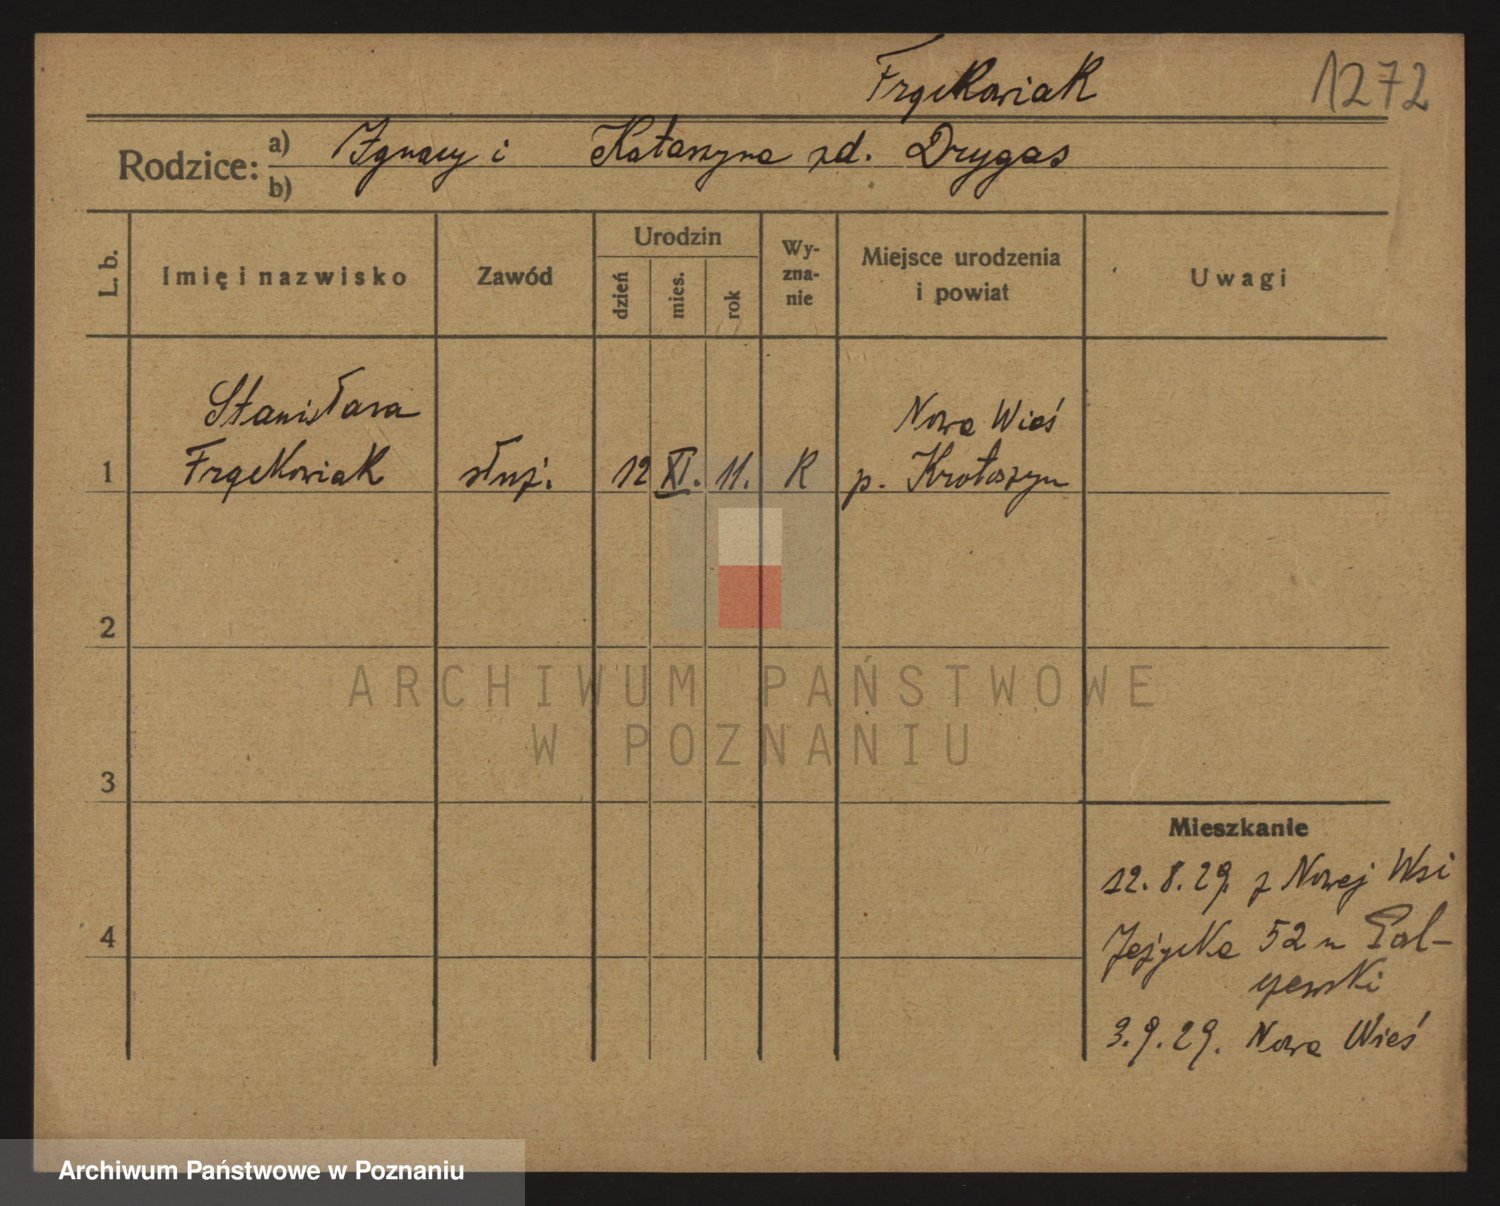 Frąckowiak 1272
Rodzice: a) Ignacy i Katarzyna zd. Drygas
b)
L. b. Imię i nazwisko Zawód Urodzin dzień mies. rok Wy-zna-nie Miejsce urodzenia i powiat Uwagi
Stanisława Nowa Wieś
1 Frąckowiak służ. 12 XI. 11. R p. Krotoszyn
2
ARCHIWUM PAŃSTWOWE
W POZNANIU
3
Mieszkanie
12.8.29. z Nowej Wsi
4 Jeżycka 52 u Gal-
czewski
3.9.29. Nowa Wieś
Archiwum Państwowe w Poznaniu